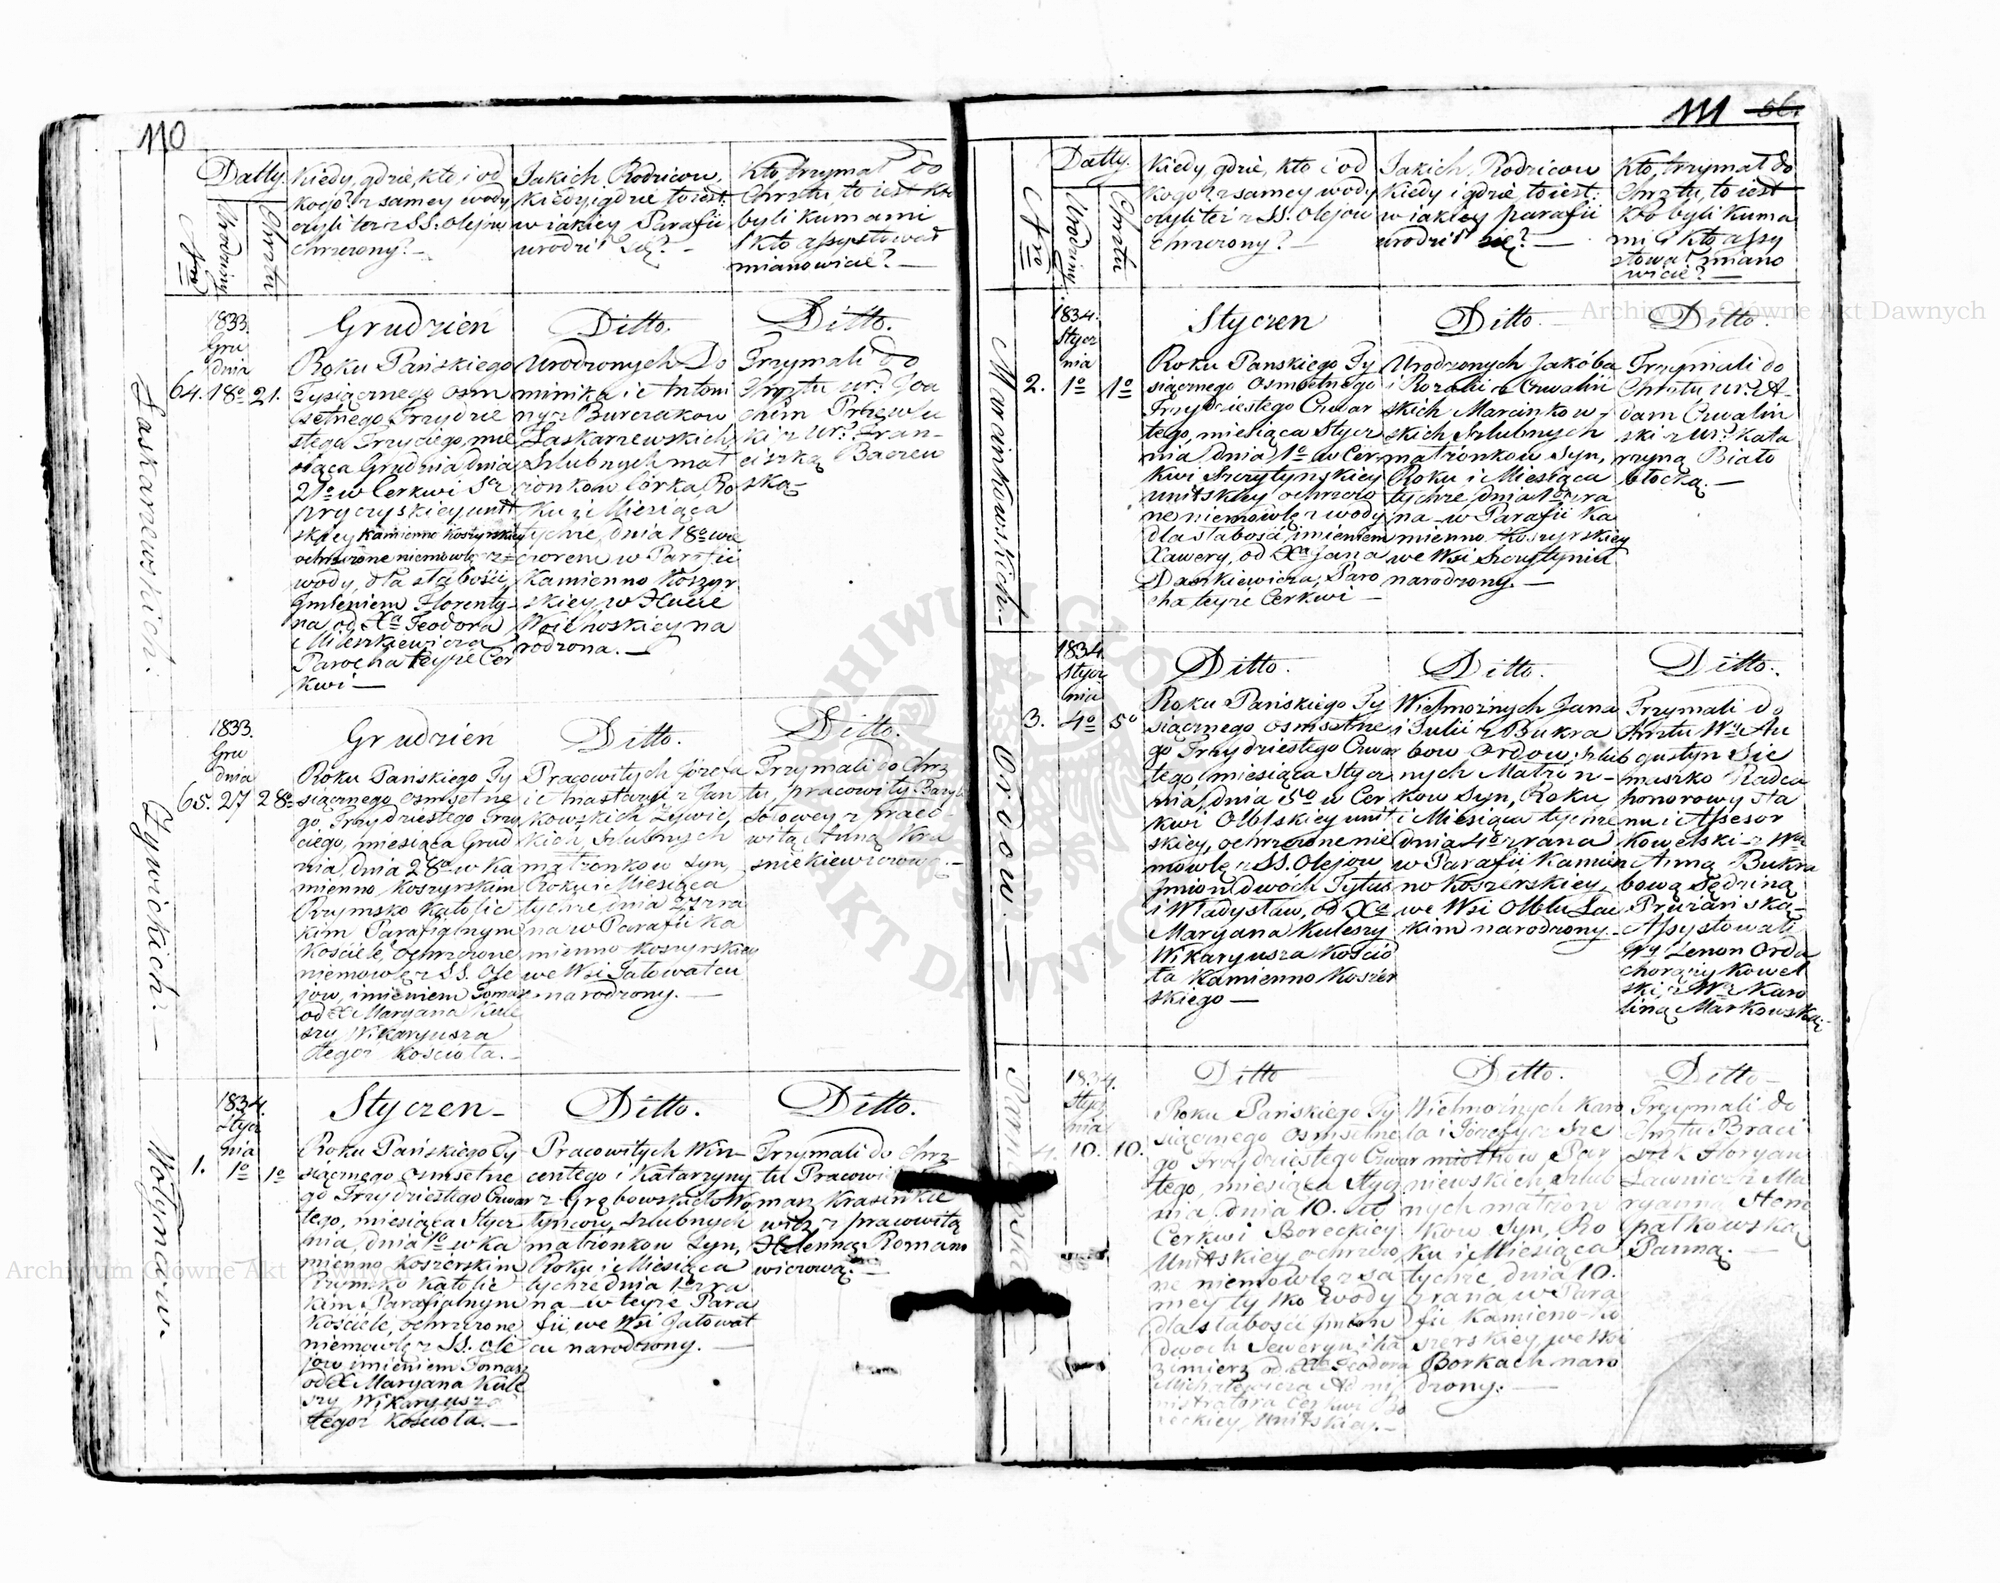 110
Datty.
Nro
Urodziny
Chrztu
Kiedy, gdzie, kto, i od
kogo? z samey wody
czyli też z SS. Olejów
chrzczony? —
Jakich Rodziców,
kiedy i gdzie, to iest:
w iakiey Parafii
urodził się? —
Kto, trzymał do
Chrztu, to iest kto
byli kumami
i kto assystował
mianowicie? —
Łaskarzewskich.
1833.
Gru
dnia
64. 18º 21.
Grudzien
Roku Pańskiego
Tysiącznego osm
setnego Trzydzie
stego Trzeciego, mie
siąca Grudnia dnia
21º w Cerkwi
unit
skiey Kamienno Koszyrskiey
ochrzczone niemowlę z
wody, dla słabości,
Imieniem Florenty
na od Xa Teodora
Mieszkiewicza
Parocha teyże Cer
kwi —
Ditto.
Urodzonych Do
minika i Antoni
ny z Burczakow
Łaskarzewskich
Szlubnych mał
żonkow Córka, Ro
ku i Miesiąca
tychże, dnia 18º wie
czorem w Parafii
Kamienno Koszyr
skiey, w Hucie
na
rodzona. —
Ditto.
Trzymali do
Chrztu Ur. Joa
chim
ki z Ur. Fran-
ciszką
ską —
Żywickich. —
1833.
Gru
dnia
65. 27 28º
Grudzien
Roku Pańskiego Ty
siącznego osmsetne
go Trzydziestego Trze
ciego, miesiąca Grud
nia, dnia 28º w Ka
mienno Koszyrskim
Rzymsko Katolic
kim Parafialnym
Kościele, ochrzczone
niemowlę z SS. Ole
jow, imieniem Tomasz
od X Maryana Kule
szy Wikaryusza
tegoż Kościoła. —
Ditto.
Pracowitych Józefa
i Anastazyi z Jan
kowskich Żywic
kich, Szlubnych
małżonkow Syn,
Roku i Miesiąca
tychże, dnia 27 z ra
na w Parafii Ka
mienno Koszyrskiey
we Wsi Jatowatcu
narodzony. —
Ditto.
Trzymali do Chrz
tu, pracowity
Sołowey z Praco-
witą Anną Kra
śnickiewiczową. —
Wołyncow. —
1834.
Stycz
nia
1. 1º 1º
Styczen —
Roku Pańskiego Ty
siącznego osmsetne
go Trzydziestego Czwar
tego, miesiąca Stycz
nia, dnia 1º w Ka
mienno Koszerskim
Rzymsko Katolic
kim Parafialnym
Kościele, ochrzczone
niemowlę z SS. Ole
jow imieniem Tomasz
od X Maryana Kule
szy Wikaryusza
tegoż Kościoła. —
Ditto.
Pracowitych Win-
centego i Katarzyny
z Grabowskich Wo
łyncow, Szlubnych
małżonkow Syn,
Roku i Miesiąca
tychże dnia 1º z ra
na w teyże Para
fii, we Wsi Jatowat
cu narodzony. —
Ditto.
Trzymali do Chrz-
tu Pracowi
masz Krasinkie
wicz z pracowitą
Helenną Romano
wiczową. —
111 56.
Datty.
Nro
Urodziny
Chrztu
Kiedy, gdzie, kto i od
kogo? z samey wody
czyli też z SS. Olejow
chrzczony? —
Jakich, Rodzicow
kiedy i gdzie, to iest:
w iakiey parafii
urodził się? —
Kto, trzymał do
Chrztu, to iest
kto byli kuma
mi i kto assy
stował miano
wicie? —
Marcinkowskich. —
1834.
Stycz
nia
2. 1º 1º
Styczen
Roku Panskiego Ty
siącznego Osmsetnego
Trzydziestego Czwar
tego, miesiąca Stycz
nia, dnia 1º w Cer
kwi Szczytynskiey
unitskiey ochrzczo
ne niemowlę z wody
dla słabości, imieniem
Xawery, od Xa Jana
Daszkiewicza, Paro
cha teyże Cerkwi —
Ditto. —
Urodzonych Jakóba
i Rozalii z Czwalin
skich Marcinkow-
skich Szlubnych
małżonkow Syn,
Roku i Miesiąca
tychże, dnia 1º z ra
na w Parafii Ka
mienno Koszyrskiey
we Wsi Szczytyniu
narodzony. —
Ditto.
Trzymali do
Chrztu Ur. A-
dam Czwalin
ski z Ur. Kata
rzyną Biało
błocką. —
Ordow. —
1834.
Stycz
nia
3. 4º 5º
Ditto.
Roku Pańskiego Ty
siącznego osmsetne
go Trzydziestego Czwar
tego, miesiąca Stycz
nia, dnia 5º w Cer
kwi Olblskiey unit
skiey, ochrzczone nie
mowlę z SS. Olejow
Imion dwóch Tytus
i Władysław, od Xa
Maryana Kuleszy
Wikaryusza Kościo
ła Kamienno Koszer
skiego —
Ditto.
Wielmożnych Jana
i Julii z Bukra
bow Ordow, Szlub
nych Małżon-
kow Syn, Roku,
i Miesiąca tychże
dnia 4º z rana
w Parafii Kamien
no Koszerskiey,
we Wsi Olblu Lac
kim narodzony. —
Ditto.
Trzymali do
Chrztu Wny Au
gustyn Sie
maszko Radca
honorowy Sta
nu i Assesor
Kowelski z Wną
Anną Bukra
bową Sędziną
Pruzańską —
Assystowali
Wny Zenon Orda
chorąży Kowel
ski, z Wną Karo
liną Markowską —
1834.
Stycz
nia
4. 10. 10.
Ditto
Roku Pańskiego Ty
siącznego osmsetne
go Trzydziestego Czwar
tego, miesiąca Stycz
nia, dnia 10. w
Cerkwi Boreckiey
Unitskiey ochrzczo
ne niemowlę z sa
mey tylko wody
dla słabości Imion
dwoch Seweryn i Ka
zimierz od Xa Teodora
Michalewicza Admi
nistratora Cerkwi Bo
reckiey, Unitskiey. —
Ditto.
Wielmożnych Karo
la i Józefy z Sze
miotkow Par
niewskich Szlub
nych małżon
kow Syn, Ro
ku i Miesiąca
tychże, dnia 10.
z rana w Para
fii Kamieno-Ko
szerskiey, we Wsi
Borkach naro
dzony. —
Ditto —
Trzymali do
Chrztu Braci
szek Floryan
Ławnicz z Ma
ryanną Stem
pałkowską
Panną. —
Archiwum Główne Akt Dawnych
Archiwum Główne Akt Dawnych
ARCHIWUM GŁÓWNE AKT DAWNYCH